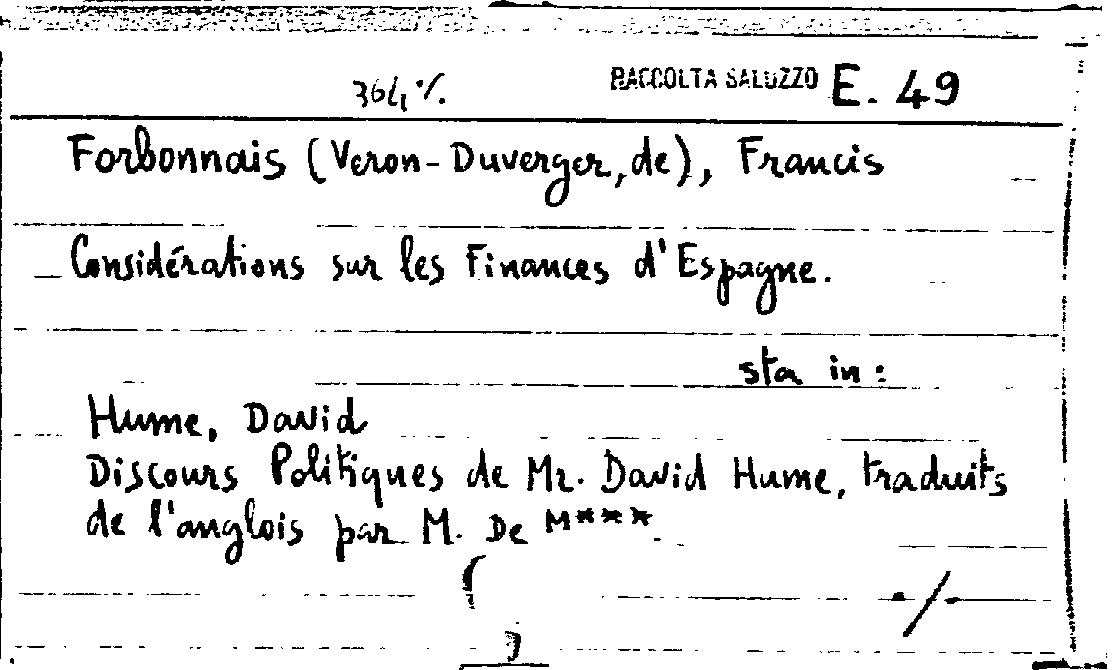 364 ·/.
RACCOLTA SALUZZO E. 49
Forbonnais (Veron-Duverger, de), Francis
_ Considérations sur les Finances d'Espagne.
sta in:
Hume, David
Discours Politiques de Mr. David Hume, traduits
de l'anglois par M. De M***.
./.